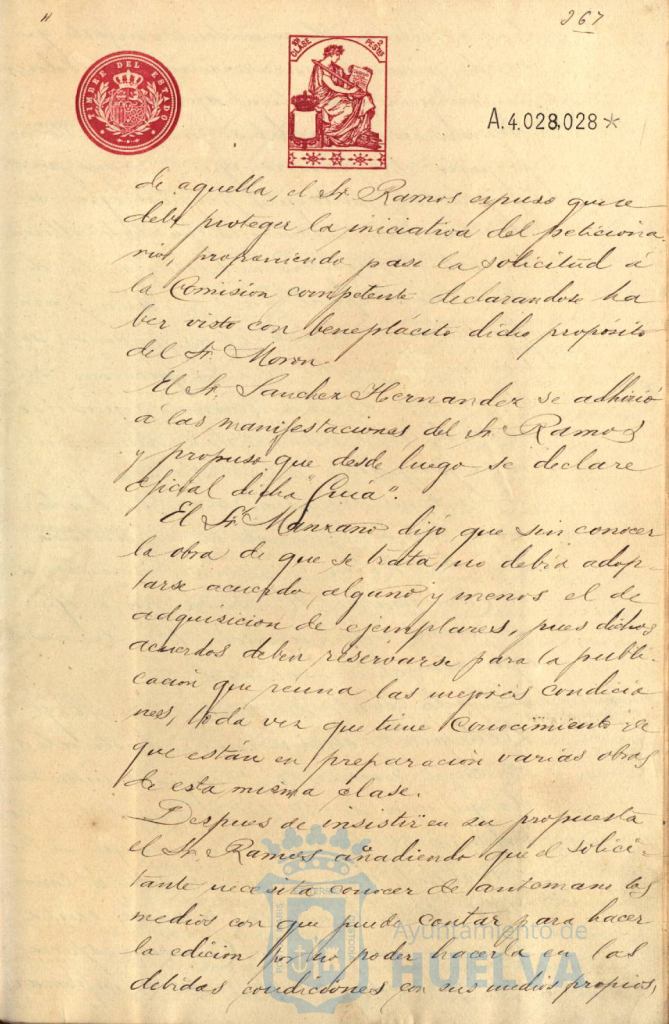 267
TIMBRE DEL ESTADO
CLASE 2 PESTAS
A.4.028,028*
de aquella, el Sr. Ramos expuso que se
debe proteger la iniciativa del peticiona-
rio, proponiendo pase la solicitud á
la Comisión competente declarandose ha
ber visto con beneplácito dicho propósito
del Sr. Moron.
El Sr. Sanchez Hernandez se adhirió
á las manifestaciones del Sr. Ramos
y propuso que desde luego se declare
oficial dicha "Guía".
El Sr. Manzano dijo que sin conocer
la obra de que se trata no debia adop-
tarse acuerdo alguno y menos el de
adquisicion de ejemplares, pues dichos
acuerdos deben reservarse para la publi-
cación que reuna las mejores condicio
nes, toda vez que tiene conocimiento de
que están en preparación varias obras
de esta misma clase.
Despues de insistir en su propuesta
el Sr. Ramos añadiendo que el solici-
tante necesita conocer de antemano los
medios con que puede contar para hacer
la edicion por no poder hacerla en las
debidas condiciones con sus medios propios,
Ayuntamiento de
HUELVA